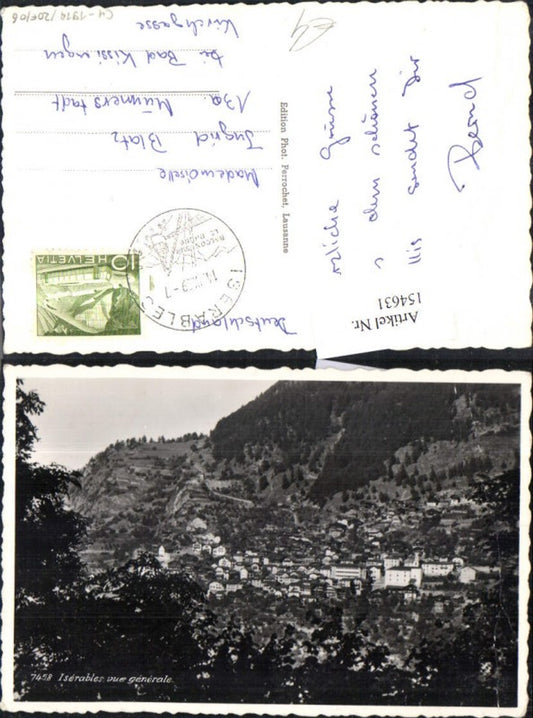 C4-1914/20E/06
E4
rzliche Grüsse
s dem schönen
llis sendet Dir
Bernd
Edition Phot. Perrochet, Lausanne
Artikel Nr.
154631
HELVETIA 10
ISERABLES
Deutschland
Mademoiselle
Ingrid Blatz
13a. Münnerstadt
bei Bad Kissingen
Kirchgasse
7458 Isérables vue générale